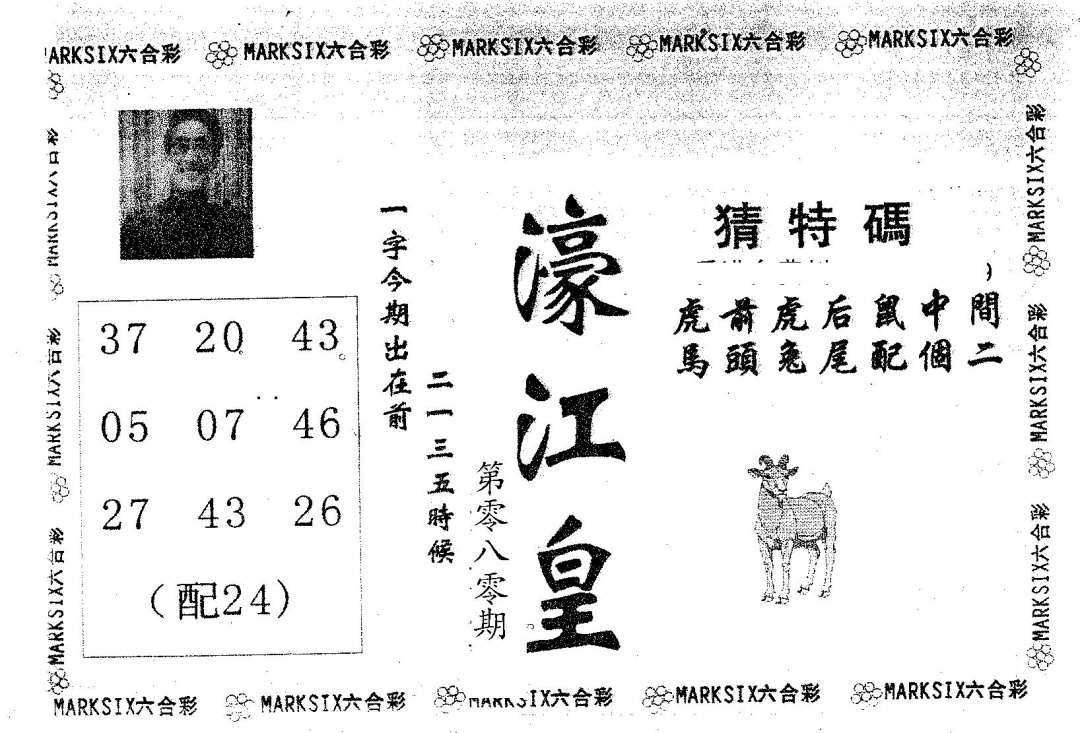 MARKSIX六合彩 MARKSIX六合彩 MARKSIX六合彩 MARKSIX六合彩
猜特碼
虎前虎后鼠中間
馬頭兔尾配個二
濠江皇
第零八零期
一字今期出在前
二一三五時候
37 20 43
05 07 46
27 43 26
(配24)
MARKSIX六合彩
MARKSIX六合彩
MARKSIX六合彩
MARKSIX六合彩
MARKSIX六合彩
MARKSIX六合彩 MARKSIX六合彩 MARKSIX六合彩 MARKSIX六合彩